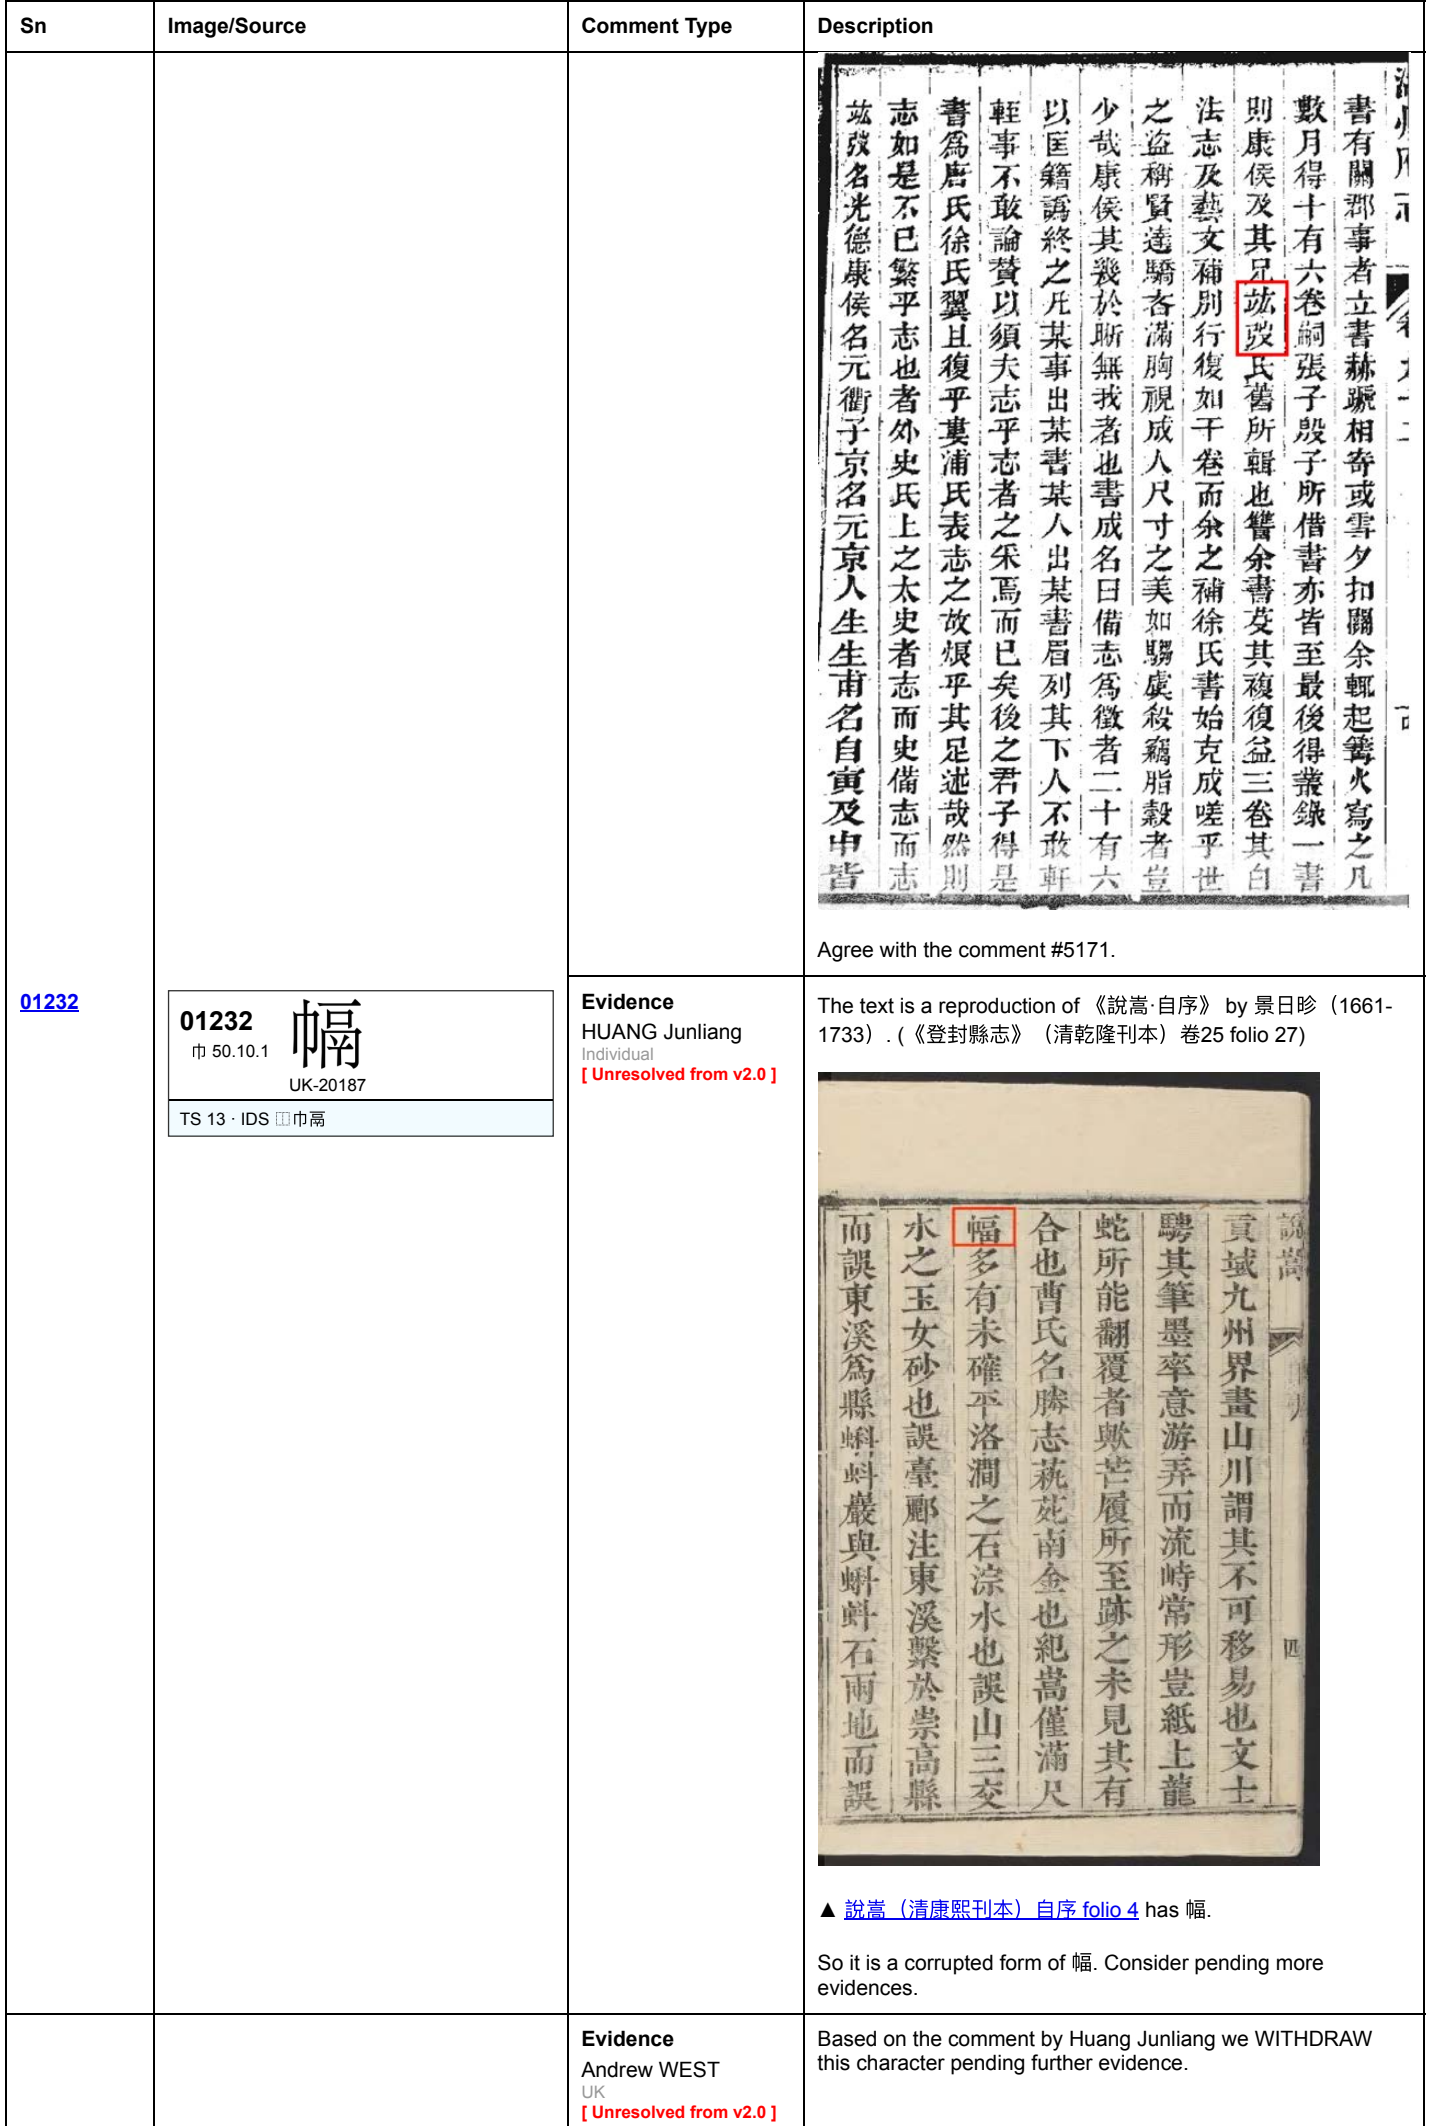 Sn Image/Source Comment Type Description
書有關郡事者立書赫蹏相寄或雪夕扣關余輒起篝火寫之凡
數月得十有六卷嗣張子殷子所借書亦皆至最後得叢錄一書
則康侯及其兄竑弢氏舊所輯也讐余書芟其複復益三卷其白
法志及藝文補別行復如干卷而余之補徐氏書始克成嗟乎世
之盜稱賢達驕吝滿胸視成人尺寸之美如騶虞殺竊脂穀者豈
少哉康侯其幾於斯無我者也書成名曰備志爲徵者二十有六
以匡籍譌終之凡某事出某書某人出某書眉列其下人不敢軒
輊事不敢論贊以須夫志乎志者之采焉而已矣後之君子得是
書爲唐氏徐氏翼且復乎婁浦氏表志之故煩乎其足述哉然則
志如是不已繁乎志也者外史氏上之太史者志而史備志而志
竑弢名光德康侯名元衢子京名元京人生生甫名自寅及申皆
Agree with the comment #5171.
01232
01232
巾 50.10.1
UK-20187
TS 13 · IDS ⿰巾鬲
Evidence
HUANG Junliang
Individual
[ Unresolved from v2.0 ]
The text is a reproduction of 《說嵩·自序》 by 景日昣（1661-
1733）. (《登封縣志》（清乾隆刊本）卷25 folio 27)
說嵩
四
貢域九州界畫山川謂其不可移易也文士
騁其筆墨率意游弄而流峙常形豈紙上龍
蛇所能翻覆者歟芒履所至跡之未見其有
合也曹氏名勝志蓺苑南金也紀嵩僅滿尺
幅多有未確平洛澗之石淙水也誤山三交
水之玉女砂也誤臺酈注東溪繫於崇高縣
而誤東溪爲縣蝌蚪巖與蝌蚪石兩地而誤
▲ 說嵩（清康熙刊本）自序 folio 4 has 幅.
So it is a corrupted form of 幅. Consider pending more
evidences.
Evidence
Andrew WEST
UK
[ Unresolved from v2.0 ]
Based on the comment by Huang Junliang we WITHDRAW
this character pending further evidence.